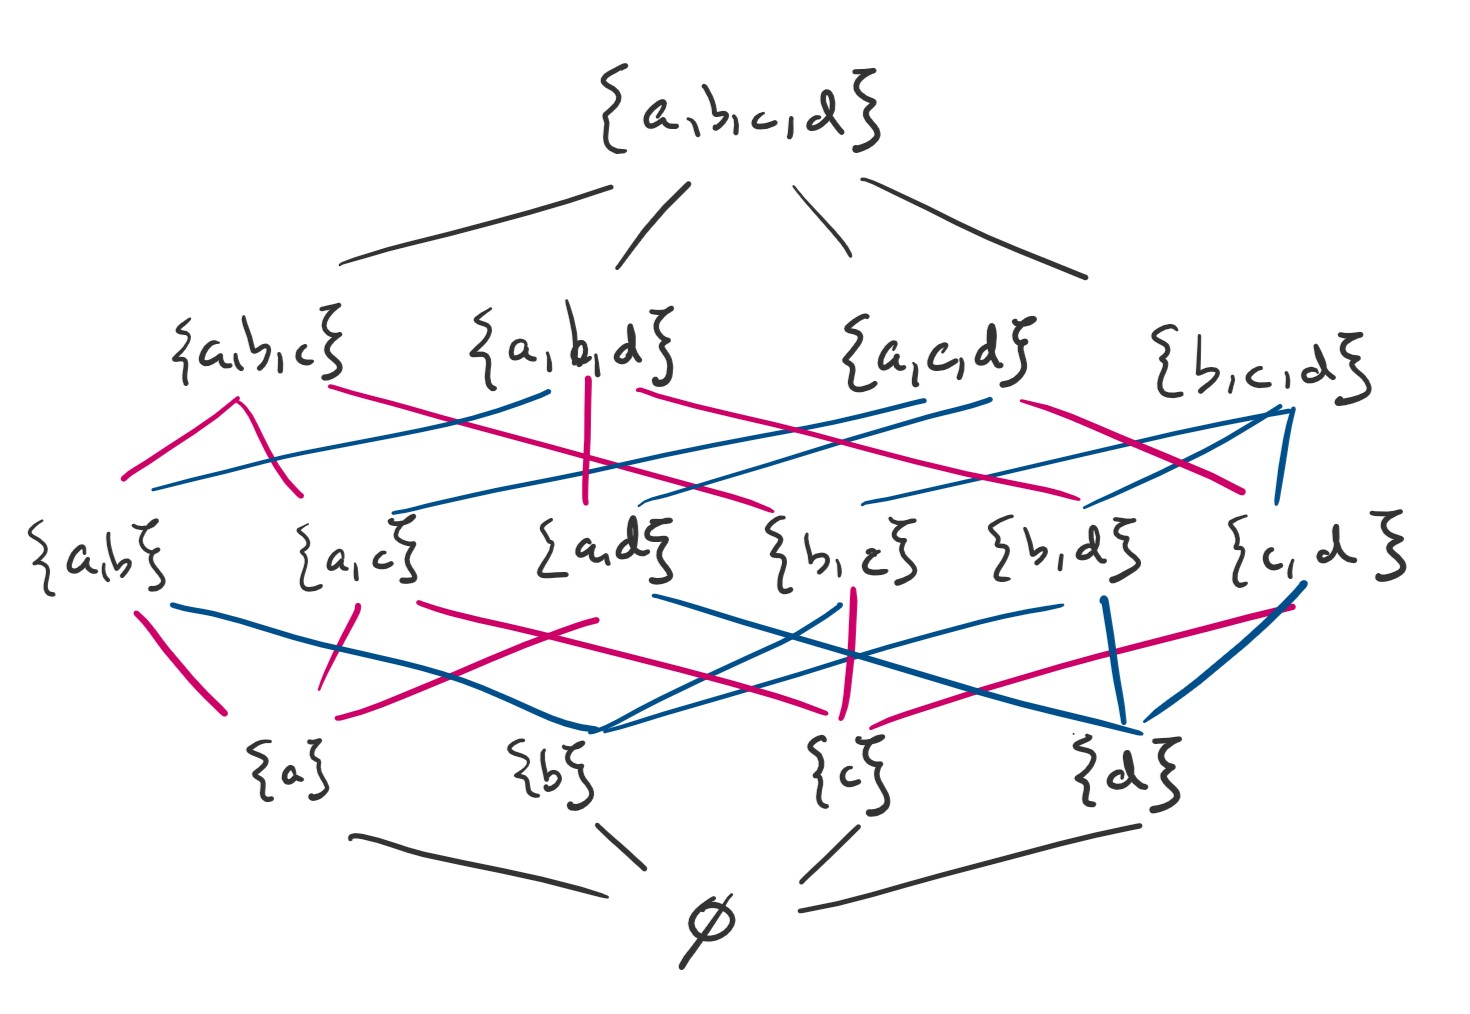 {a,b,c,d}
{a,b,c} {a,b,d} {a,c,d} {b,c,d}
{a,b} {a,c} {a,d} {b,c} {b,d} {c,d}
{a} {b} {c} {d}
∅